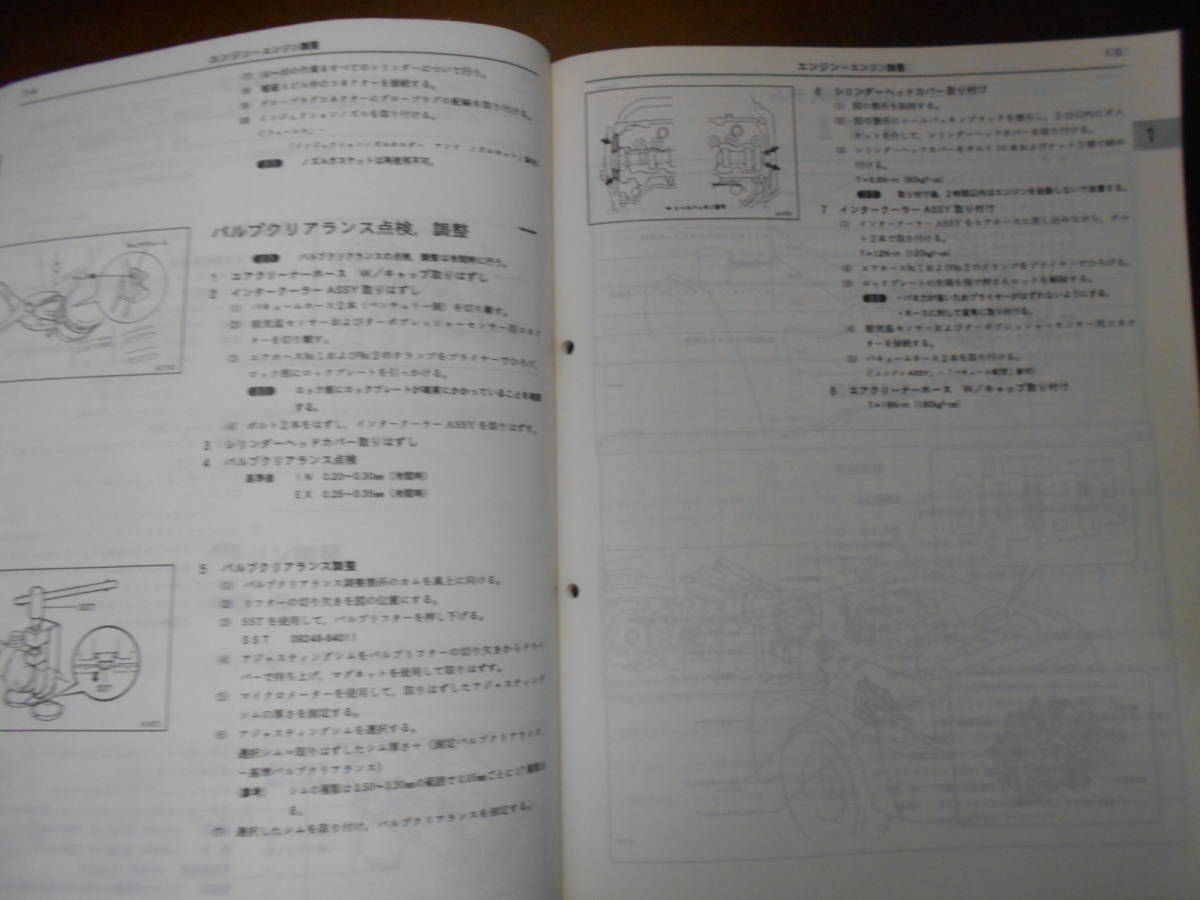 エンジン－エンジン調整
⑺ ⑷～⑹の作業をすべてのシリンダーについて行う。
を接続する。
⑼ グロープラグコネクターにグロープラグの配線を取り付ける。
⑽ インジェクションノズルを取り付ける。
ノズルガスケットは再使用不可。
バルブクリアランス点検，調整
バルブクリアランスの点検，調整は冷間時に行う。
1 エアクリーナーホース W／キャップ取りはずし
2 インタークーラー ASSY 取りはずし
⑴ バキュームホース2本（ベンチュリー側）を切り離す。
⑵ 吸気温センサーおよびターボプレッシャーセンサー用コネク
ターを切り離す。
⑶ エアホース№1および№2のクランプをプライヤーでひろげ，
ロック部にロックプレートを引っかける。
ロック部にロックプレートが確実にかかっていることを確認
する。
⑷ ボルト2本をはずし，インタークーラー ASSY を取りはずす。
3 シリンダーヘッドカバー取りはずし
4 バルブクリアランス点検
基準値 IN 0.20～0.30㎜（冷間時）
EX 0.25～0.35㎜（冷間時）
5 バルブクリアランス調整
⑴ バルブクリアランス調整箇所のカムを真上に向ける。
⑵ リフターの切り欠きを図の位置にする。
⑶ SSTを使用して，バルブリフターを押し下げる。
SST 09248-64011
⑷ アジャスティングシムをバルブリフターの切り欠きからドライ
バーで持ち上げ，マグネットを使用して取りはずす。
⑸ マイクロメーターを使用して，取りはずしたアジャスティング
シムの厚さを測定する。
⑹ アジャスティングシムを選択する。
選択シム＝取りはずしたシム厚さ＋（測定バルブクリアランス
－基準バルブクリアランス）
（参考） シムの種類は2.50～3.30㎜の範囲で0.05㎜ごとに17種類あ
る。
⑺ 選択したシムを取り付け，バルブクリアランスを測定する。
SST
SST
エンジン－エンジン調整
1
6 シリンダーヘッドカバー取り付け
⑴ 図の箇所を脱脂する。
⑵ 図の箇所にシールパッキンブラックを塗布し，
ケットを介して，シリンダーヘッドカバーを取り付ける。
⑶ シリンダーヘッドカバーをボルト10本およびナット2個で締め
付ける。
取り付け後，2時間以内はエンジンを始動しないで放置する。
シールパッキン塗布
7 インタークーラー ASSY 取り付け
⑴ インタークーラー ASSY をエアホースに差し込みながら，ボル
ト2本で取り付ける。
T＝12N･m｛120kgf･㎝｝
⑵ エアホース№1および№2のクランプをプライヤーでひろげる。
⑶ ロックプレートの先端を指で押さえロックを解除する。
・バネ力が強いためプライヤーがはずれないようにする。
・ホースに対して直角に取り付ける。
⑷ 吸気温センサーおよびターボプレッシャーセンサー用コネク
ターを接続する。
⑸ バキュームホース2本を取り付ける。
（「エンジン ASSY」－「バキューム配管」参照）
8 エアクリーナーホース W／キャップ取り付け
T＝18N･m｛180kgf･㎝｝